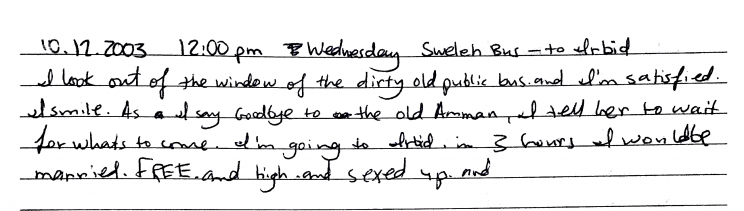 10.12.2003 12:00 pm Wednesday Sweleh Bus - to Irbid
I look out of the window of the dirty old public bus. and I'm satisfied.
I smile. As I say Goodbye to the old Amman, I tell her to wait
for whats to come. I'm going to Irbid. in 3 hours I would be
married. FREE. and high. and sexed up. and